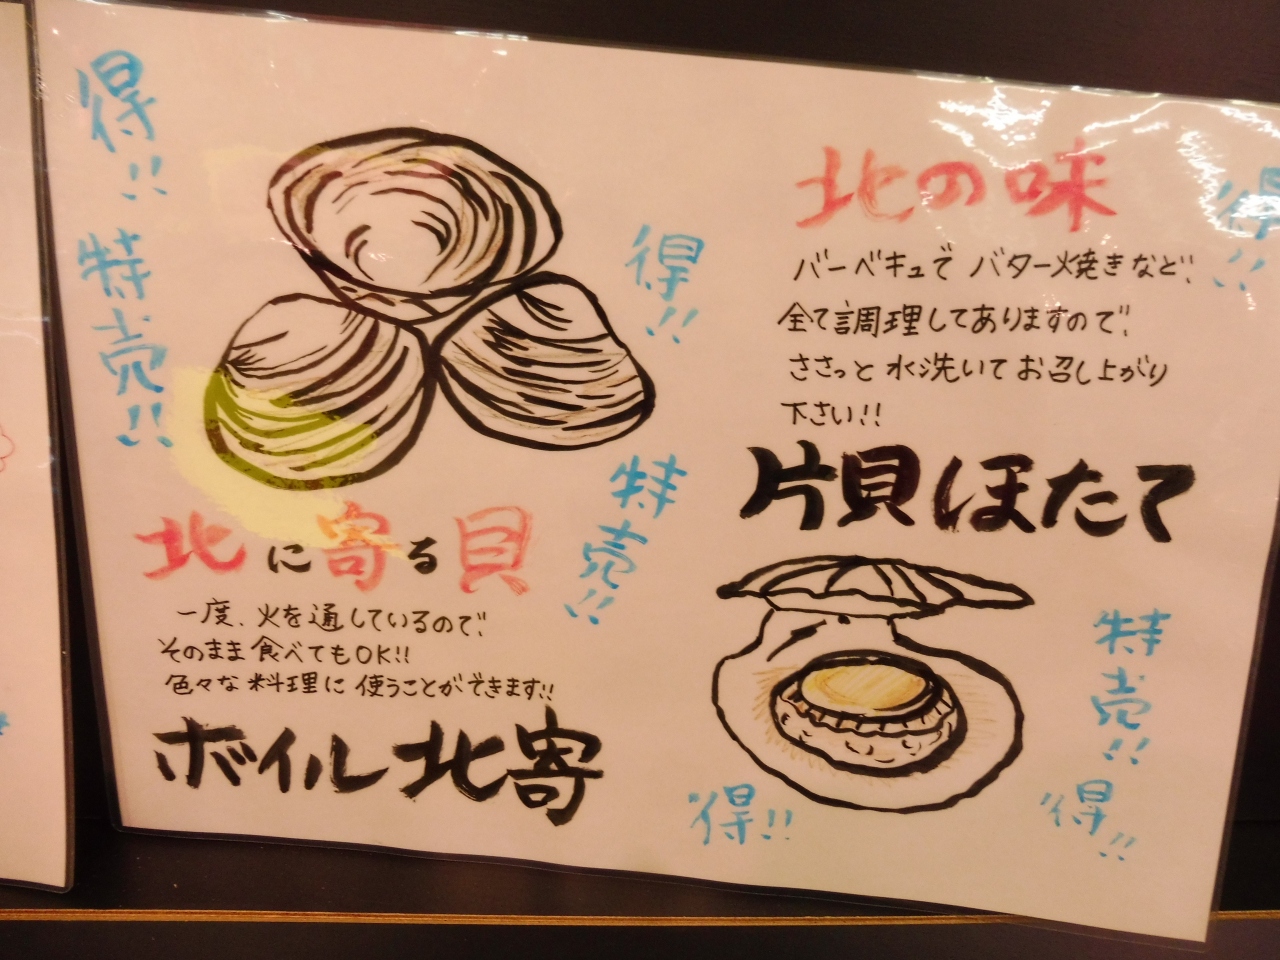 得!!
特売!!
得!!
特売!!
北に寄る貝
一度、火を通しているので、
そのまま食べてもOK!!
色々な料理に使うことができます!!
ボイル北寄
北の味
得!!
バーベキュでバター焼きなど、
全て調理してありますので、
ささっと水洗いてお召し上がり
下さい!!
片貝ほたて
特売!!
得!!
得!!